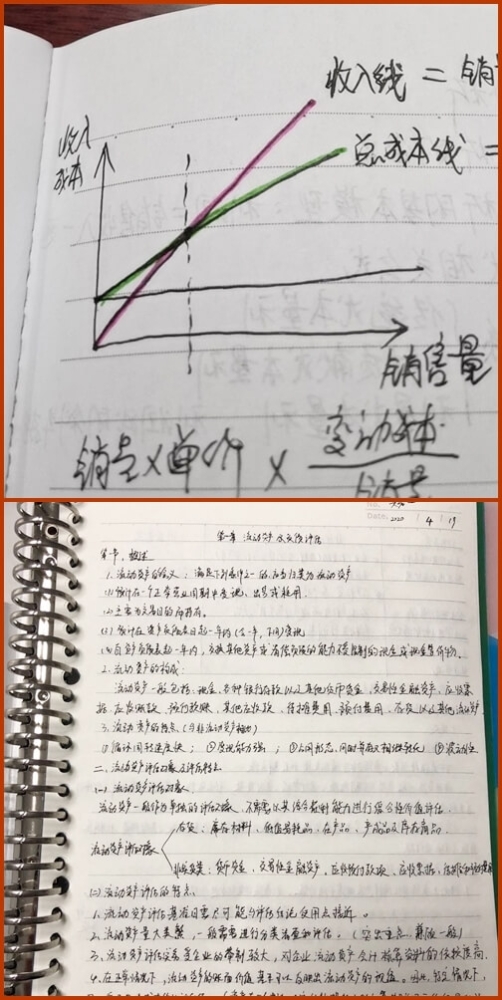 收入线 = 销
收入
成本
总成本线 =
销售量
销量×单价 × 变动成本
销量
Date. 2020 / 4 / 19
第一章 流动资产
第一节、概述
1. 流动资产的含义：满足下列条件之一的，应当归类为流动资产
(1) 预计在一个正常营业周期中变现、出售或耗用
(2) 主要为交易目的而持有。
(3) 预计在资产负债表日起一年内(含一年，下同)变现
(4) 自资产负债表日起一年内，交换其他资产或清偿负债的能力不受限制的现金或现金等价物。
2. 流动资产的构成：
流动资产一般包括：现金、各种银行存款以及其他货币资金、交易性金融资产、应收票
据、应收账款、预付账款、其他应收款、待摊费用、存货以及其他流动资产
3. 流动资产的特点 (与非流动资产相对)
① 循环周转速度快； ② 变现能力强； ③ ④ 波动性
二、流动资产评估对象及评估特点
(一) 流动资产评估对象
流动资产一般作为单独的评估对象，不需要以其综合获利能力进行综合性价值评估
实货：库存材料、低值易耗品、在产品、产成品及库存商品
流动资产评估对象
货币资金、交易性金融资产、应收预付款项、应收票据、
(二) 流动资产评估的特点
1. 流动资产评估基准日要尽可能与评估结论使用点接近。
2. 流动资产量大类繁，一般需要进行分类清查和评估。(突出重点 兼顾一般)
3. 流动资产评估 企业的 较大，对企业流动资产会计核算资料的依赖度高
4. 在正常情况下，流动资产的账面价值基本可以反映出流动资产的现值。因此，特定情况下，